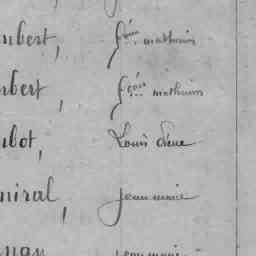 ubert, fçois mathurin
nbert, fçois mathurin
ubot, Louis
niral, jean marie
jean marie